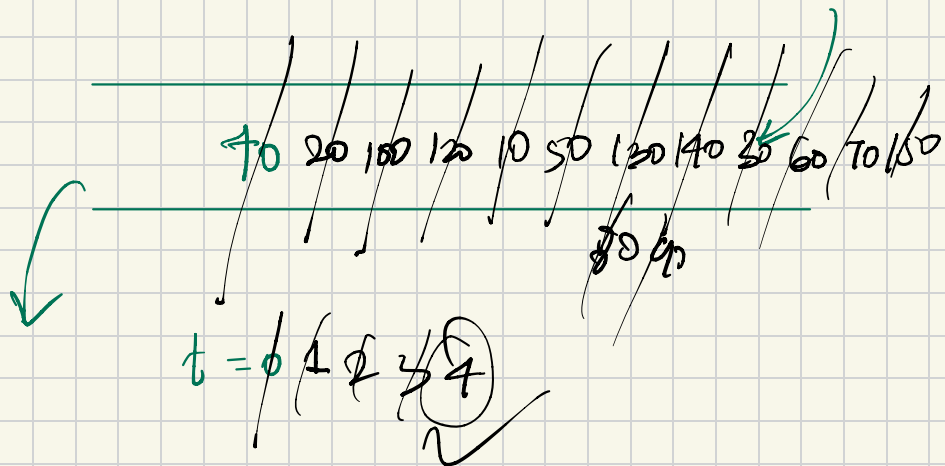 40 20 100 120 10 50 130 140 30 60 70 150
80 90
t = 0 1 2 3 4